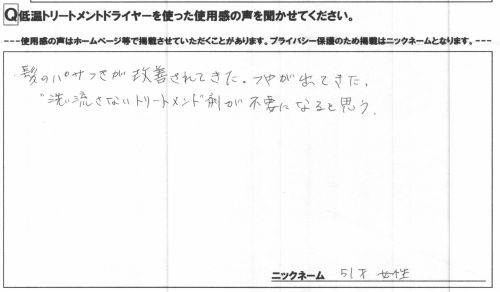 Q低温トリートメントドライヤーを使った使用感の声を聞かせてください。
---使用感の声はホームページ等で掲載させていただくことがあります。プライバシー保護のため掲載はニックネームとなります。---
・髪のパサつきが改善されてきた。つやが出てきた。
"洗い流さないトリートメント"剤が不要になると思う。
ニックネーム 51才 女性